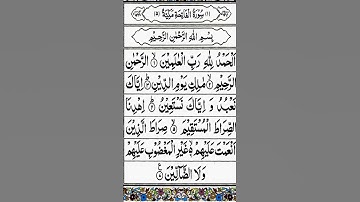 (١) سُوْرَةُ الْفَاتِحَةِ مَكِّيَّةٌ (٥)
بِسْمِ اللهِ الرَّحْمٰنِ الرَّحِيْمِ
اَلْحَمْدُ لِلّٰهِ رَبِّ الْعٰلَمِيْنَ ۙ﴿۱﴾ الرَّحْمٰنِ
الرَّحِيْمِ ۙ﴿۲﴾ مٰلِكِ يَوْمِ الدِّيْنِ ؕ﴿۳﴾ اِيَّاكَ
نَعْبُدُ وَ اِيَّاكَ نَسْتَعِيْنُ ؕ﴿۴﴾ اِهْدِنَا
الصِّرَاطَ الْمُسْتَقِيْمَ ۙ﴿۵﴾ صِرَاطَ الَّذِيْنَ
اَنْعَمْتَ عَلَيْهِمْ ۙ۬﴿۶﴾ غَيْرِ الْمَغْضُوْبِ عَلَيْهِمْ
وَ لَا الضَّآلِّيْنَ ﴿۷﴾